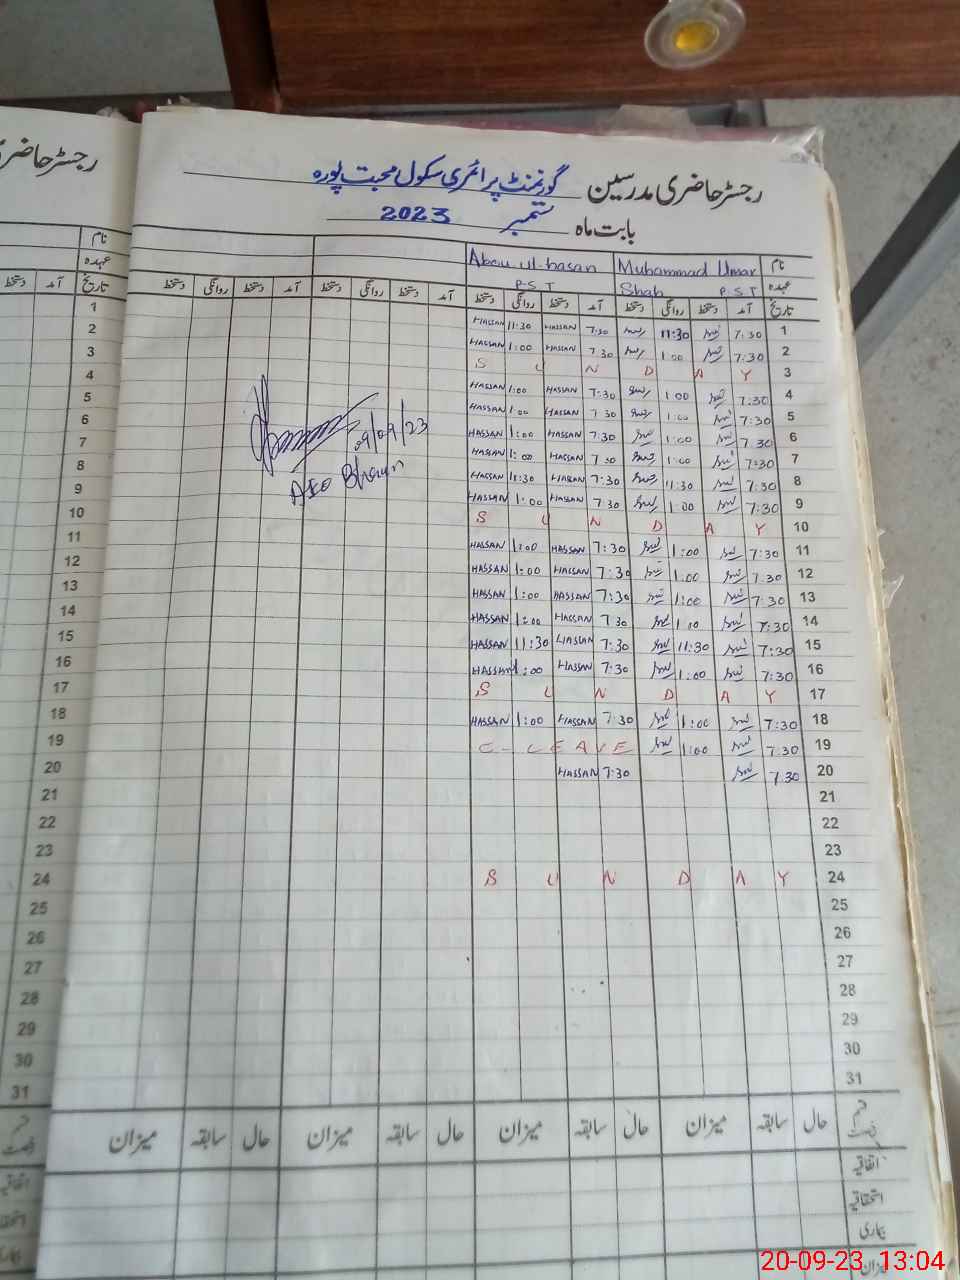 رجسٹر حاضری مدرسین گورنمنٹ پرائمری سکول محبت پورہ
بابت ماہ ستمبر 2023
نام Muhammad Umar Shah Abou ul-hasan
عہدہ P.S.T P.S.T
تاریخ آمد دستخط روانگی دستخط آمد دستخط روانگی دستخط آمد دستخط روانگی دستخط آمد دستخط روانگی دستخط
1 7:30 11:30 7:30 HASSAN 11:30 HASSAN
2 7:30 1:00 7:30 HASSAN 1:00 HASSAN
3 S U N D A Y
4 7:30 1:00 7:30 HASSAN 1:00 HASSAN
5 7:30 1:00 7:30 HASSAN 1:00 HASSAN
6 7:30 1:00 7:30 HASSAN 1:00 HASSAN
7 7:30 1:00 7:30 HASSAN 1:00 HASSAN
8 7:30 11:30 7:30 HASSAN 11:30 HASSAN
9 7:30 1:00 7:30 HASSAN 1:00 HASSAN
10 S U N D A Y
11 7:30 1:00 7:30 HASSAN 1:00 HASSAN
12 7:30 1:00 7:30 HASSAN 1:00 HASSAN
13 7:30 1:00 7:30 HASSAN 1:00 HASSAN
14 7:30 1:00 7:30 HASSAN 1:00 HASSAN
15 7:30 11:30 7:30 HASSAN 11:30 HASSAN
16 7:30 1:00 7:30 HASSAN 1:00 HASSAN
17 S U N D A Y
18 7:30 1:00 7:30 HASSAN 1:00 HASSAN
19 7:30 1:00 C-LEAVE
20 7:30 7:30 HASSAN
21
22
23
24 S U N D A Y
25
26
27
28
29
30
31
09/09/23
AEO
حال سابقہ میزان حال سابقہ میزان حال سابقہ میزان
اتفاقیہ
استحقاقیہ
بیماری
میزان
رجسٹر حاضری
نام
عہدہ
تاریخ آمد دستخط
1
2
3
4
5
6
7
8
9
10
11
12
13
14
15
16
17
18
19
20
21
22
23
24
25
26
27
28
29
30
31
20-09-23 13:04